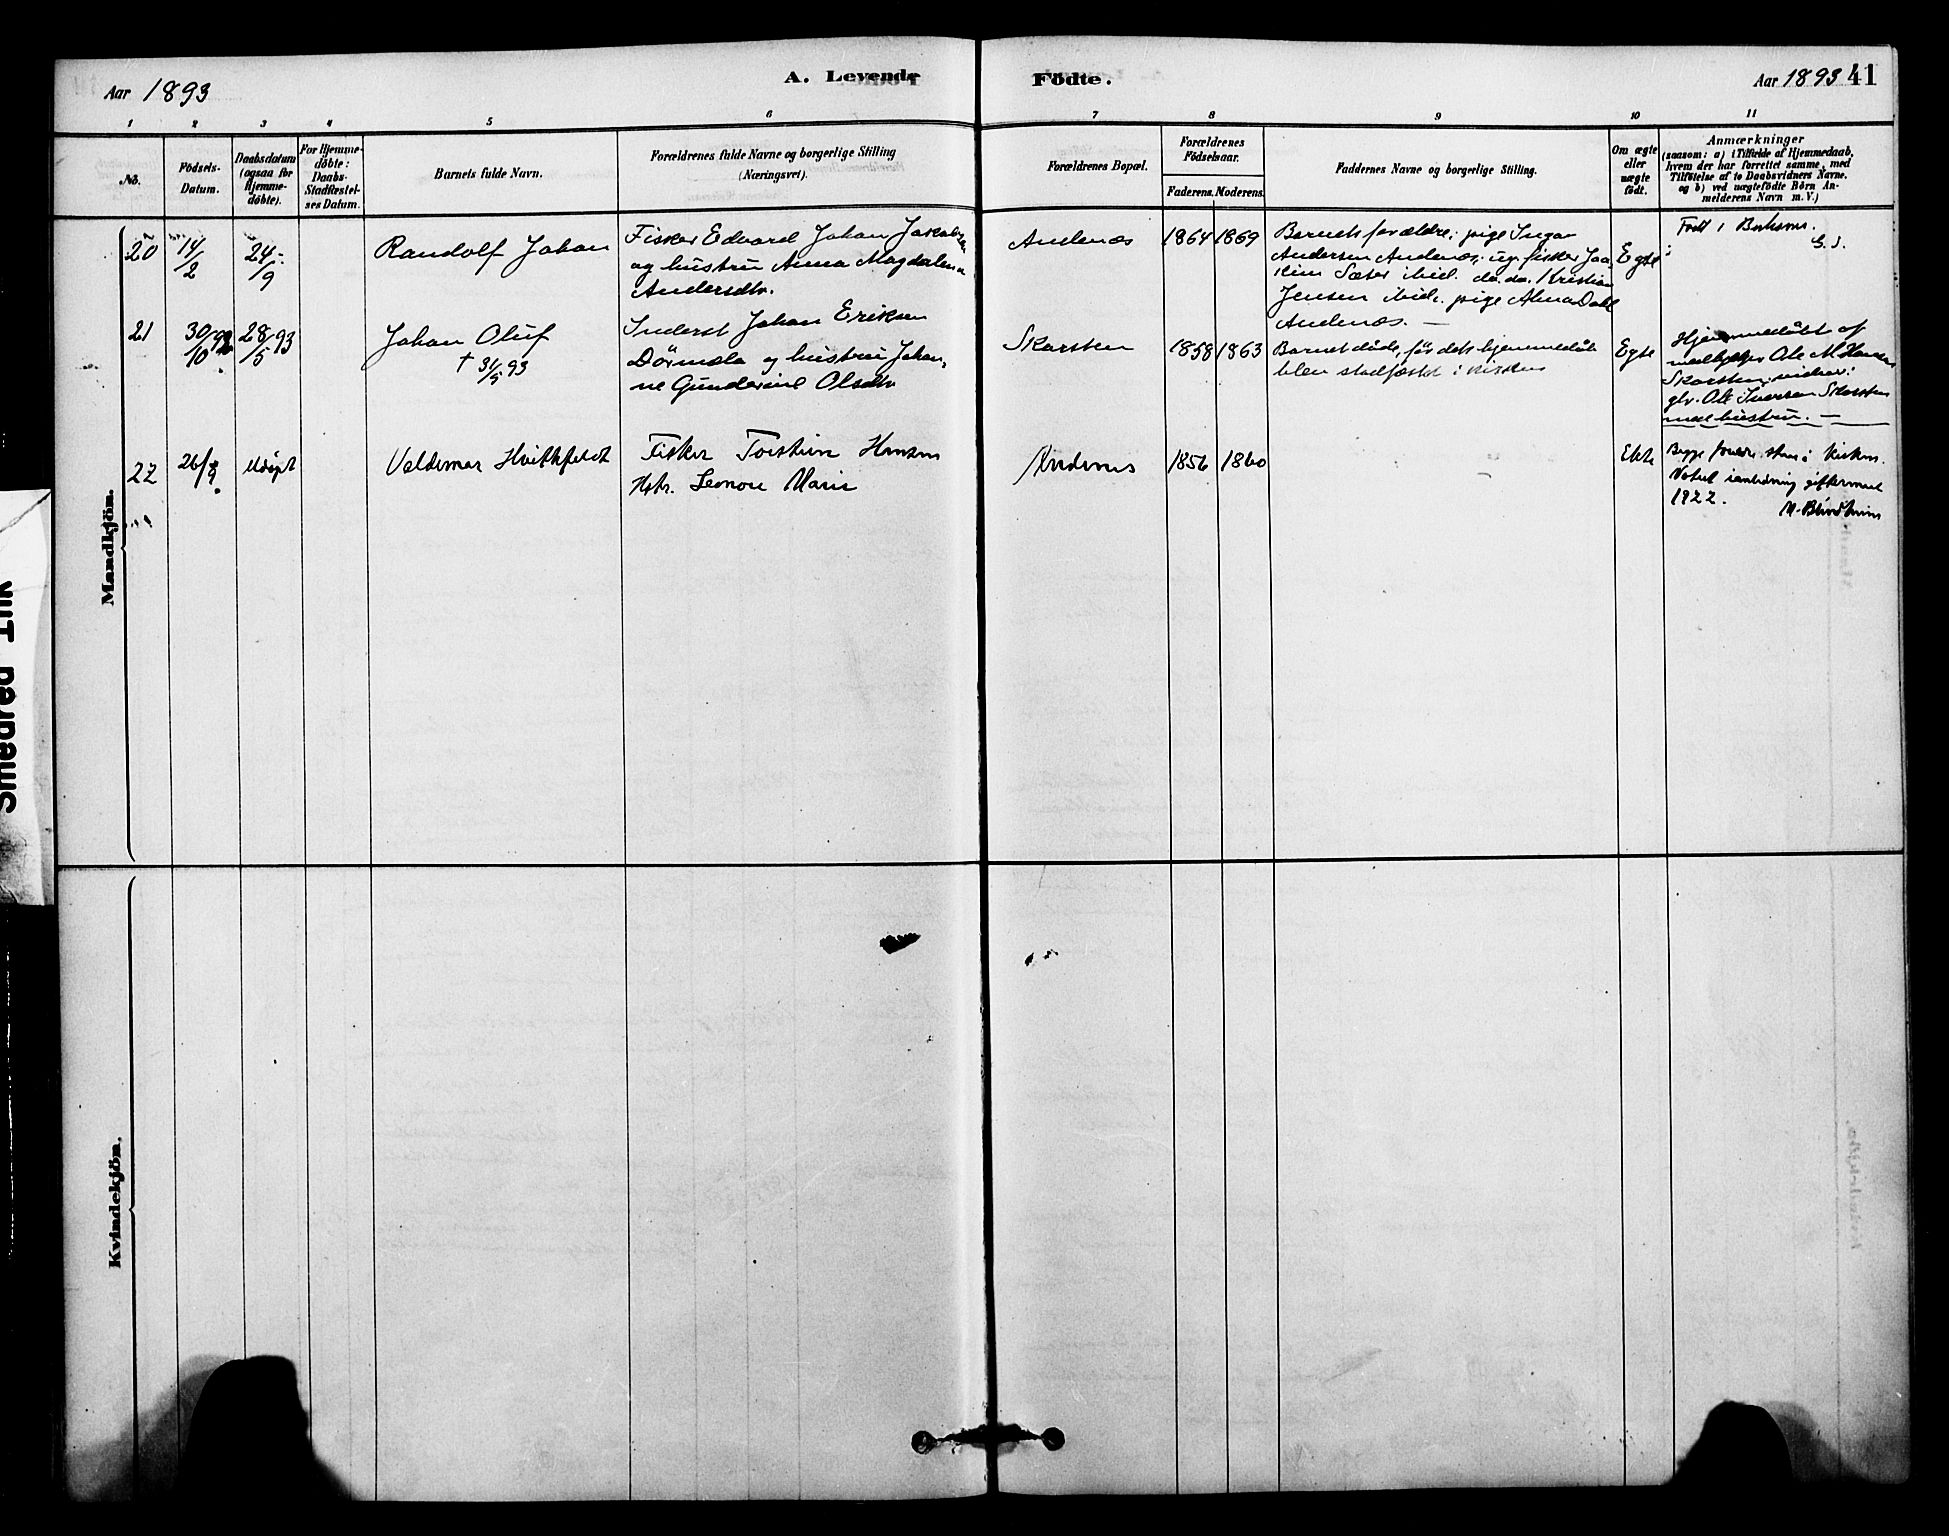 Aar 1893
A. Levende Födte.
Aar 1893 41
1 2 3 4 5 6 7 8 9 10 11
No.
Födsels-
Datum.
Daabsdatum
(ogsaa for
Hjemme-
döbte).
For Hjemme-
döbte:
Daabs-
Stadfæstel-
ses Datum.
Barnets fulde Navn.
Forældrenes fulde Navne og borgerlige Stilling
(Næringsvei).
Forældrenes Bopæl.
Forældrenes
Födselsaar.
Faderens. Moderens.
Faddernes Navne og borgerlige Stilling.
Om ægte
eller
uægte
födt.
Anmærkninger
(saasom: a) i Tilfælde af Hjemmedaab,
hvem der har forrettet samme, med
Tilföielse af to Daabsvidners Navne.
og b) ved uægtefödte Börn An-
melderens Navn m. V.)
Mandkjön.
20
14/2
24/9
Randolf Johan
Fisker Edvard Johan Jakobsen
og hustru Anna Magdalena
Andersdtr.
Andenæs
1864 1869
Barnets forældre, pige Inga
Andersen Andenæs, ug. fisker Joa-
kim Sæter ibid. do. do. Kristian
Jensen ibid. pige Alma Dahl
Andenæs. —
Egte
Født i
21
30/10 92
28/5 93
Johan Oluf
† 31/5 93
Inderst Johan Eriksen
og hustru Johan-
ne Gunderine Olsdtr
Skarsten
1858 1863
Barnet døde, før dets hjemmedåb
blev stadfæstet i kirken
Egte
Hjemmedøbt af
Ole M Hansen
Skarsten, vidner:
Ole Iversen Skarsten
med hustru. —
22
26/9
Udöpt
Valdemar Hvitkfeldt
Fisker Torstein Hansen
Hstr. Leonore Marie
Andenes
1856 1860
Ekte
Begge foreldre i kirken.
Notert i anledning giftermaal
1922.
Kvindekjön.